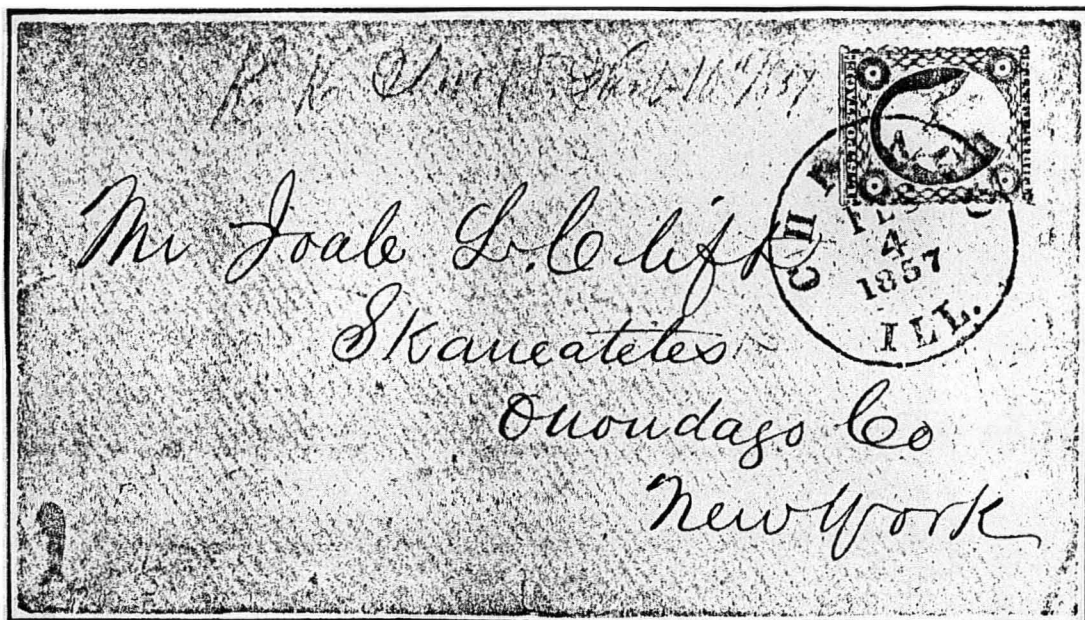 Mr Joab L. Clift
Skaneateles
Onondago Co
New York
CHI
FEB
4
1857
ILL.
U.S. POSTAGE